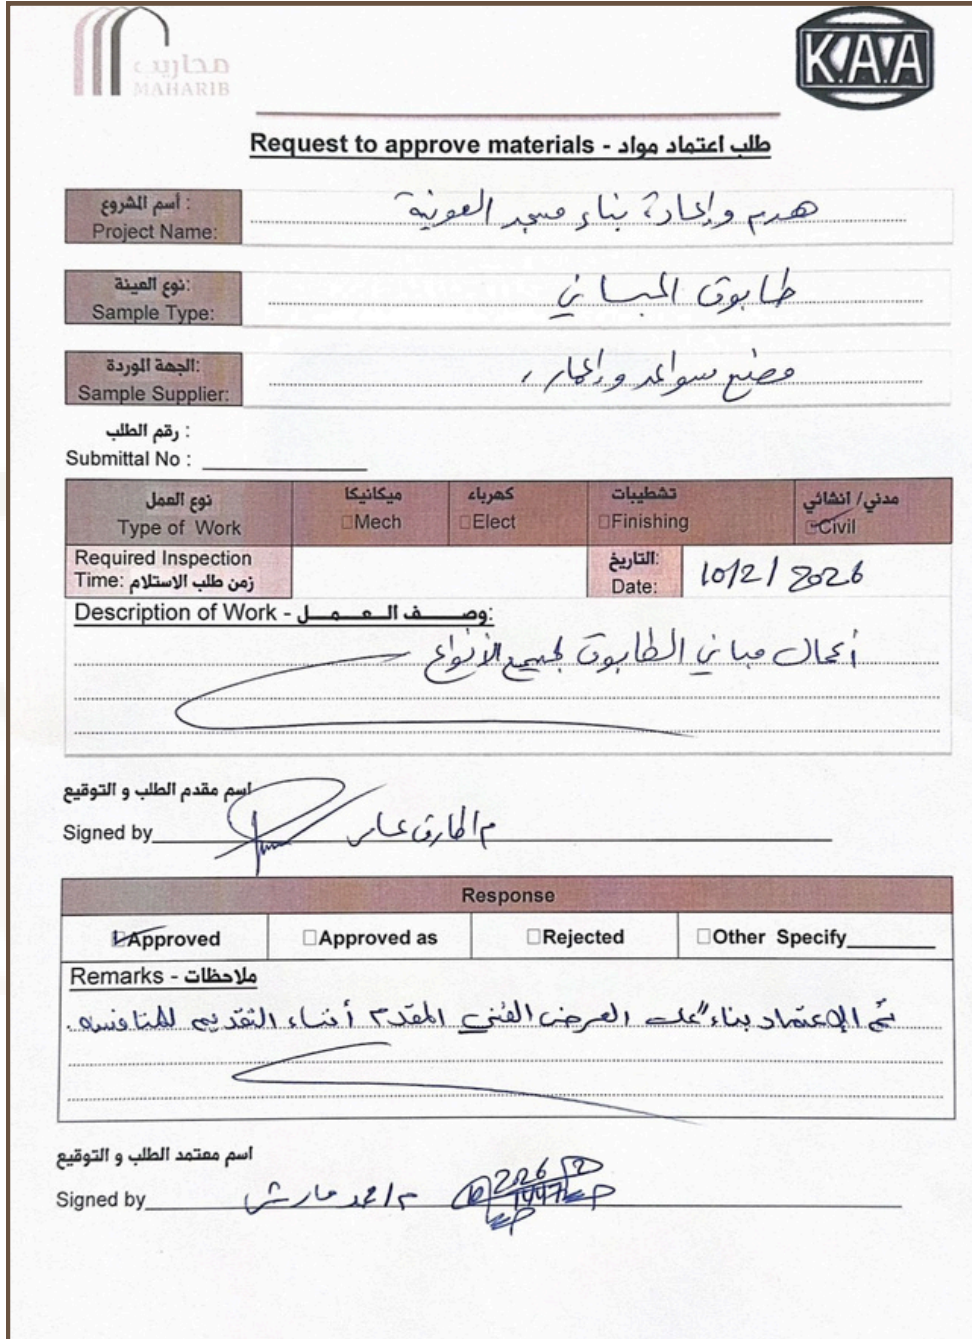 محاريب
MAHARIB
K.A.A
Request to approve materials - طلب اعتماد مواد
أسم المشروع :
Project Name:
هدم وإعادة بناء مسجد العونية
نوع العينة:
Sample Type:
طابوق المباني
الجهة الموردة:
Sample Supplier:
مصنع سواعد وإعمار
رقم الطلب :
Submittal No :
نوع العمل ميكانيكا كهرباء تشطيبات مدني/ انشائي
Type of Work □Mech □Elect □Finishing □Civil
Required Inspection
Time: زمن طلب الاستلام
التاريخ:
Date:
10/2/2026
Description of Work - وصــف الـعـمـل:
أعمال مباني الطابوق لجميع الأنواع
اسم مقدم الطلب و التوقيع
Signed by م/طارق
Response
□Approved □Approved as □Rejected □Other Specify
Remarks - ملاحظات
تم الإعتماد بناءً على العرض الفني المقدم أثناء التقديم للمنافسه.
اسم معتمد الطلب و التوقيع
Signed by م/احمد
1447